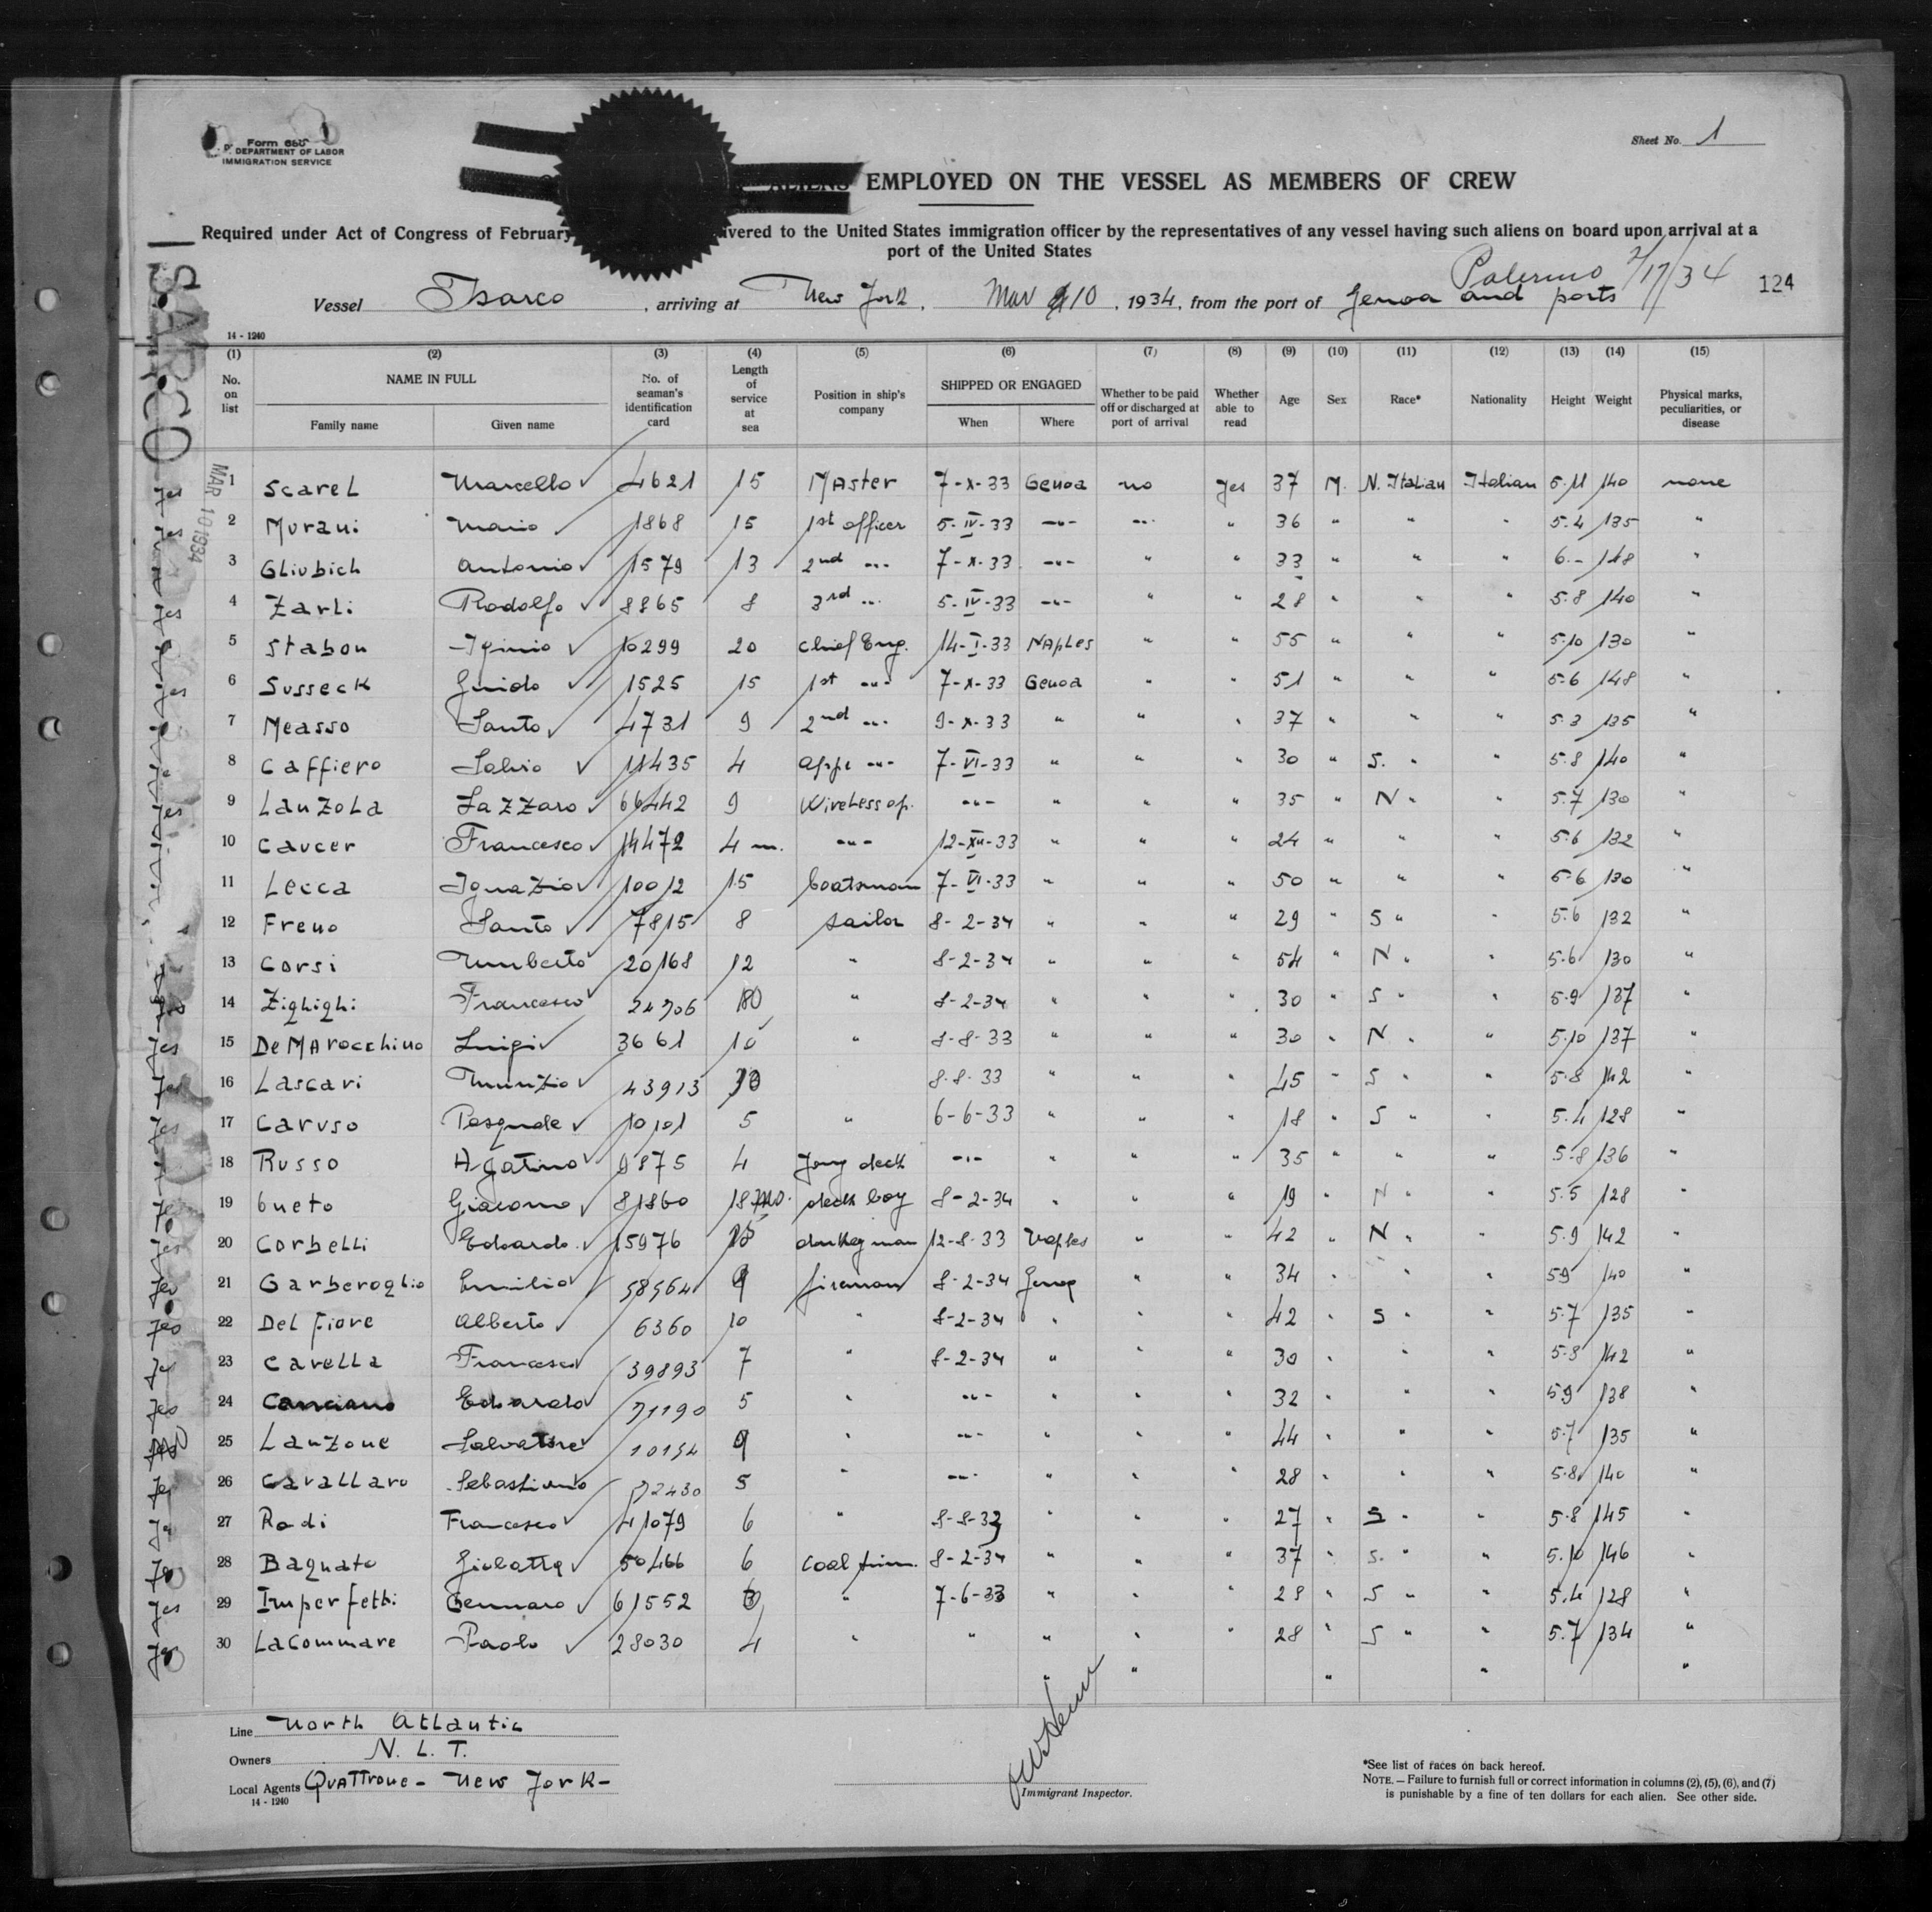 Form 680
U. S. DEPARTMENT OF LABOR
IMMIGRATION SERVICE
Sheet No. 1
ALIENS EMPLOYED ON THE VESSEL AS MEMBERS OF CREW
Required under Act of Congress of February vered to the United States immigration officer by the representatives of any vessel having such aliens on board upon arrival at a
port of the United States
Palermo 2/17/34
124
Vessel Isarco, arriving at New York, Mar 10, 1934, from the port of Genoa and ports
14-1240
ISARCO
MAR 10 1934
(1) (2) (3) (4) (5) (6) (7) (8) (9) (10) (11) (12) (13) (14) (15)
No. on list NAME IN FULL Family name Given name No. of seaman's identification card Length of service at sea Position in ship's company SHIPPED OR ENGAGED When Where Whether to be paid off or discharged at port of arrival Whether able to read Age Sex Race* Nationality Height Weight Physical marks, peculiarities, or disease
yes 1 Scarel Marcello 4621 15 Master 7-X-33 Genoa no yes 37 M. N. Italian Italian 5.11 140 none
yes 2 Morani Mario 1868 15 1st officer 5-IV-33 -"- -"- " 36 " " " 5.4 135 "
3 Gliubich Antonio 1579 13 2nd -"- 7-X-33 -"- " " 33 " " " 6.- 148 "
yes 4 Zarli Rodolfo 8865 8 3rd -"- 5-IV-33 -"- " " 28 " " " 5.8 140 "
5 Stabon Iginio 10299 20 chief Eng. 14-I-33 Naples " " 55 " " " 5.10 130 "
yes 6 Susseck Guido 1525 15 1st -"- 7-X-33 Genoa " " 51 " " " 5.6 148 "
7 Measso Santo 4731 9 2nd -"- 9-X-33 " " " 37 " " " 5.3 135 "
8 Caffiero Salvio 11435 4 appr -"- 7-VI-33 " " " 30 " S. " " 5.8 140 "
yes 9 Lanzola Lazzaro 66442 9 Wireless op. -"- " " " 35 " N " " 5.7 130 "
10 Caucer Francesco 14472 4 m. -"- 12-XII-33 " " " 24 " " " 5.6 132 "
11 Lecca Ignazio 10012 15 boatsman 7-VI-33 " " " 50 " " " 5.6 130 "
12 Freno Santo 7815 8 sailor 8-2-34 " " " 29 " S " " 5.6 132 "
13 Corsi Umberto 20168 12 " 8-2-34 " " " 54 " N " " 5.6 130 "
14 Zighighi Francesco 24706 " 8-2-34 " " " 30 " S " " 5.9 137 "
yes 15 De Marocchino Luigi 3661 10 " 8-8-33 " " " 30 " N " " 5.10 137 "
yes 16 Lascari Nunzio 43913 10 8-8-33 " " " 45 " S " " 5.8 142 "
yes 17 Caruso Pasquale 10101 5 " 6-6-33 " " " 18 " S " " 5.4 128 "
18 Russo Agatino 9875 4 Jong deck -"- " " " 35 " " " 5.8 136 "
19 Cueto Giacomo 81860 18 mo. deck boy 8-2-34 " " " 19 " N " " 5.5 128 "
yes 20 Corbelli Edoardo 15976 donkeyman 12-8-33 Naples " " 42 " N " " 5.9 142 "
yes 21 Garberoglio Emilio 58564 9 fireman 8-2-34 Genoa " " 34 " " " 5.9 140 "
yes 22 Del Fiore Alberto 6360 10 " 8-2-34 " " " 42 " S " " 5.7 135 "
yes 23 Cavella Francesco 39893 7 " 8-2-34 " " " 30 " " " 5.8 142 "
yes 24 Canciano Edoardo 71190 5 " -"- " " " 32 " " " 5.9 138 "
yes 25 Lanzone Salvatore 10154 9 " -"- " " " 44 " " " 5.7 135 "
yes 26 Cavallaro Sebastiano 72430 5 " -"- " " " 28 " " " 5.8 140 "
27 Rodi Francesco 41079 6 " 8-8-33 " " " 27 " S " " 5.8 145 "
yes 28 Bagnato Giobatta 50466 6 coal trim. 8-2-34 " " " 37 " S. " " 5.10 146 "
yes 29 Imperfetti Gennaro 61552 " 7-6-33 " " " 28 " S " " 5.4 128 "
yes 30 LaCommare Paolo 28030 4 " " " " " 28 " S " " 5.7 134 "
" " " " "
Line North Atlantic
Owners N. L. T.
Local Agents Quattrone - New York -
14-1240
Immigrant Inspector.
*See list of races on back hereof.
NOTE.—Failure to furnish full or correct information in columns (2), (5), (6), and (7)
is punishable by a fine of ten dollars for each alien. See other side.